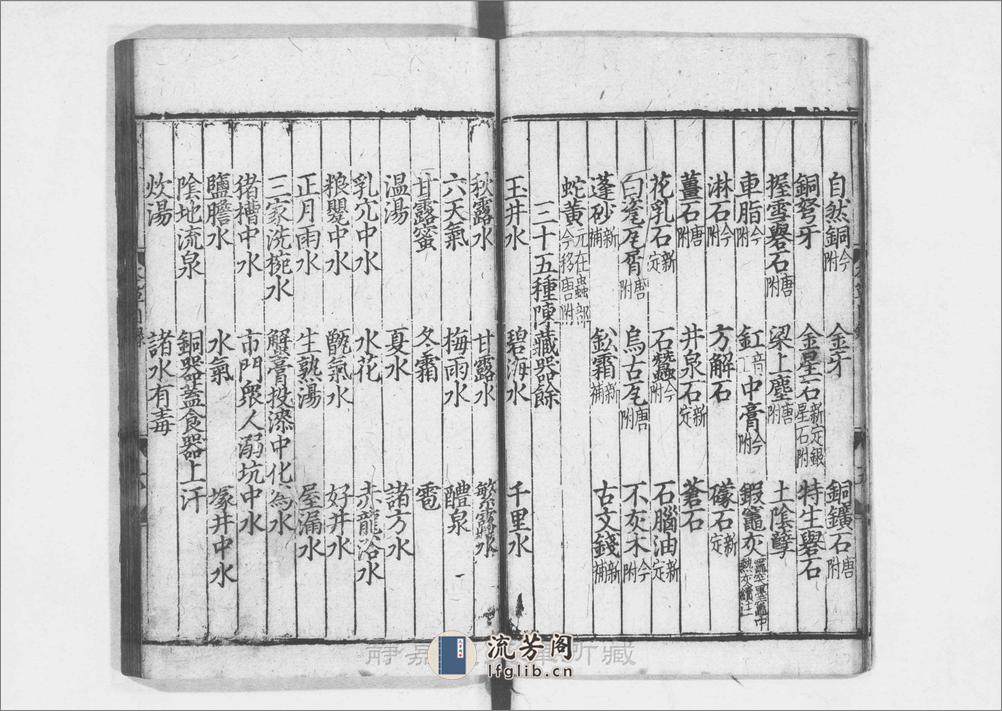 自然銅今附　金牙　銅鑛石唐附
銅弩牙　金星石新定銀星石附　特生礐石
握雪礐石唐附　梁上塵唐附　土陰孽
車脂今附　釭音工中膏今附　鍛竈灰
淋石今附　方解石　礞石新定
薑石唐附　井泉石新定　蒼石
花乳石新定　石蠶今附　石腦油新定
白瓷瓦屑唐附　烏古瓦唐附　不灰木今附
蓬砂新補　鈆霜新補　古文錢新補
蛇黃元在蟲部今移唐附
三十五種陳藏器餘
玉井水　碧海水　千里水
秋露水　甘露水　繁露水
六天氣　梅雨水　醴泉
甘露蜜　冬霜　雹
温湯　夏水　諸方水
乳穴中水　水花　赤龍浴水
粮甖中水　甑氣水　好井水
正月雨水　生熟湯　屋漏水
三家洗椀水　蟹膏投漆中化為水
猪槽中水　市門衆人溺坑中水
鹽膽水　水氣　塚井中水
陰地流泉　銅器蓋食器上汗
炊湯　諸水有毒
流芳阁
lfglib.cn